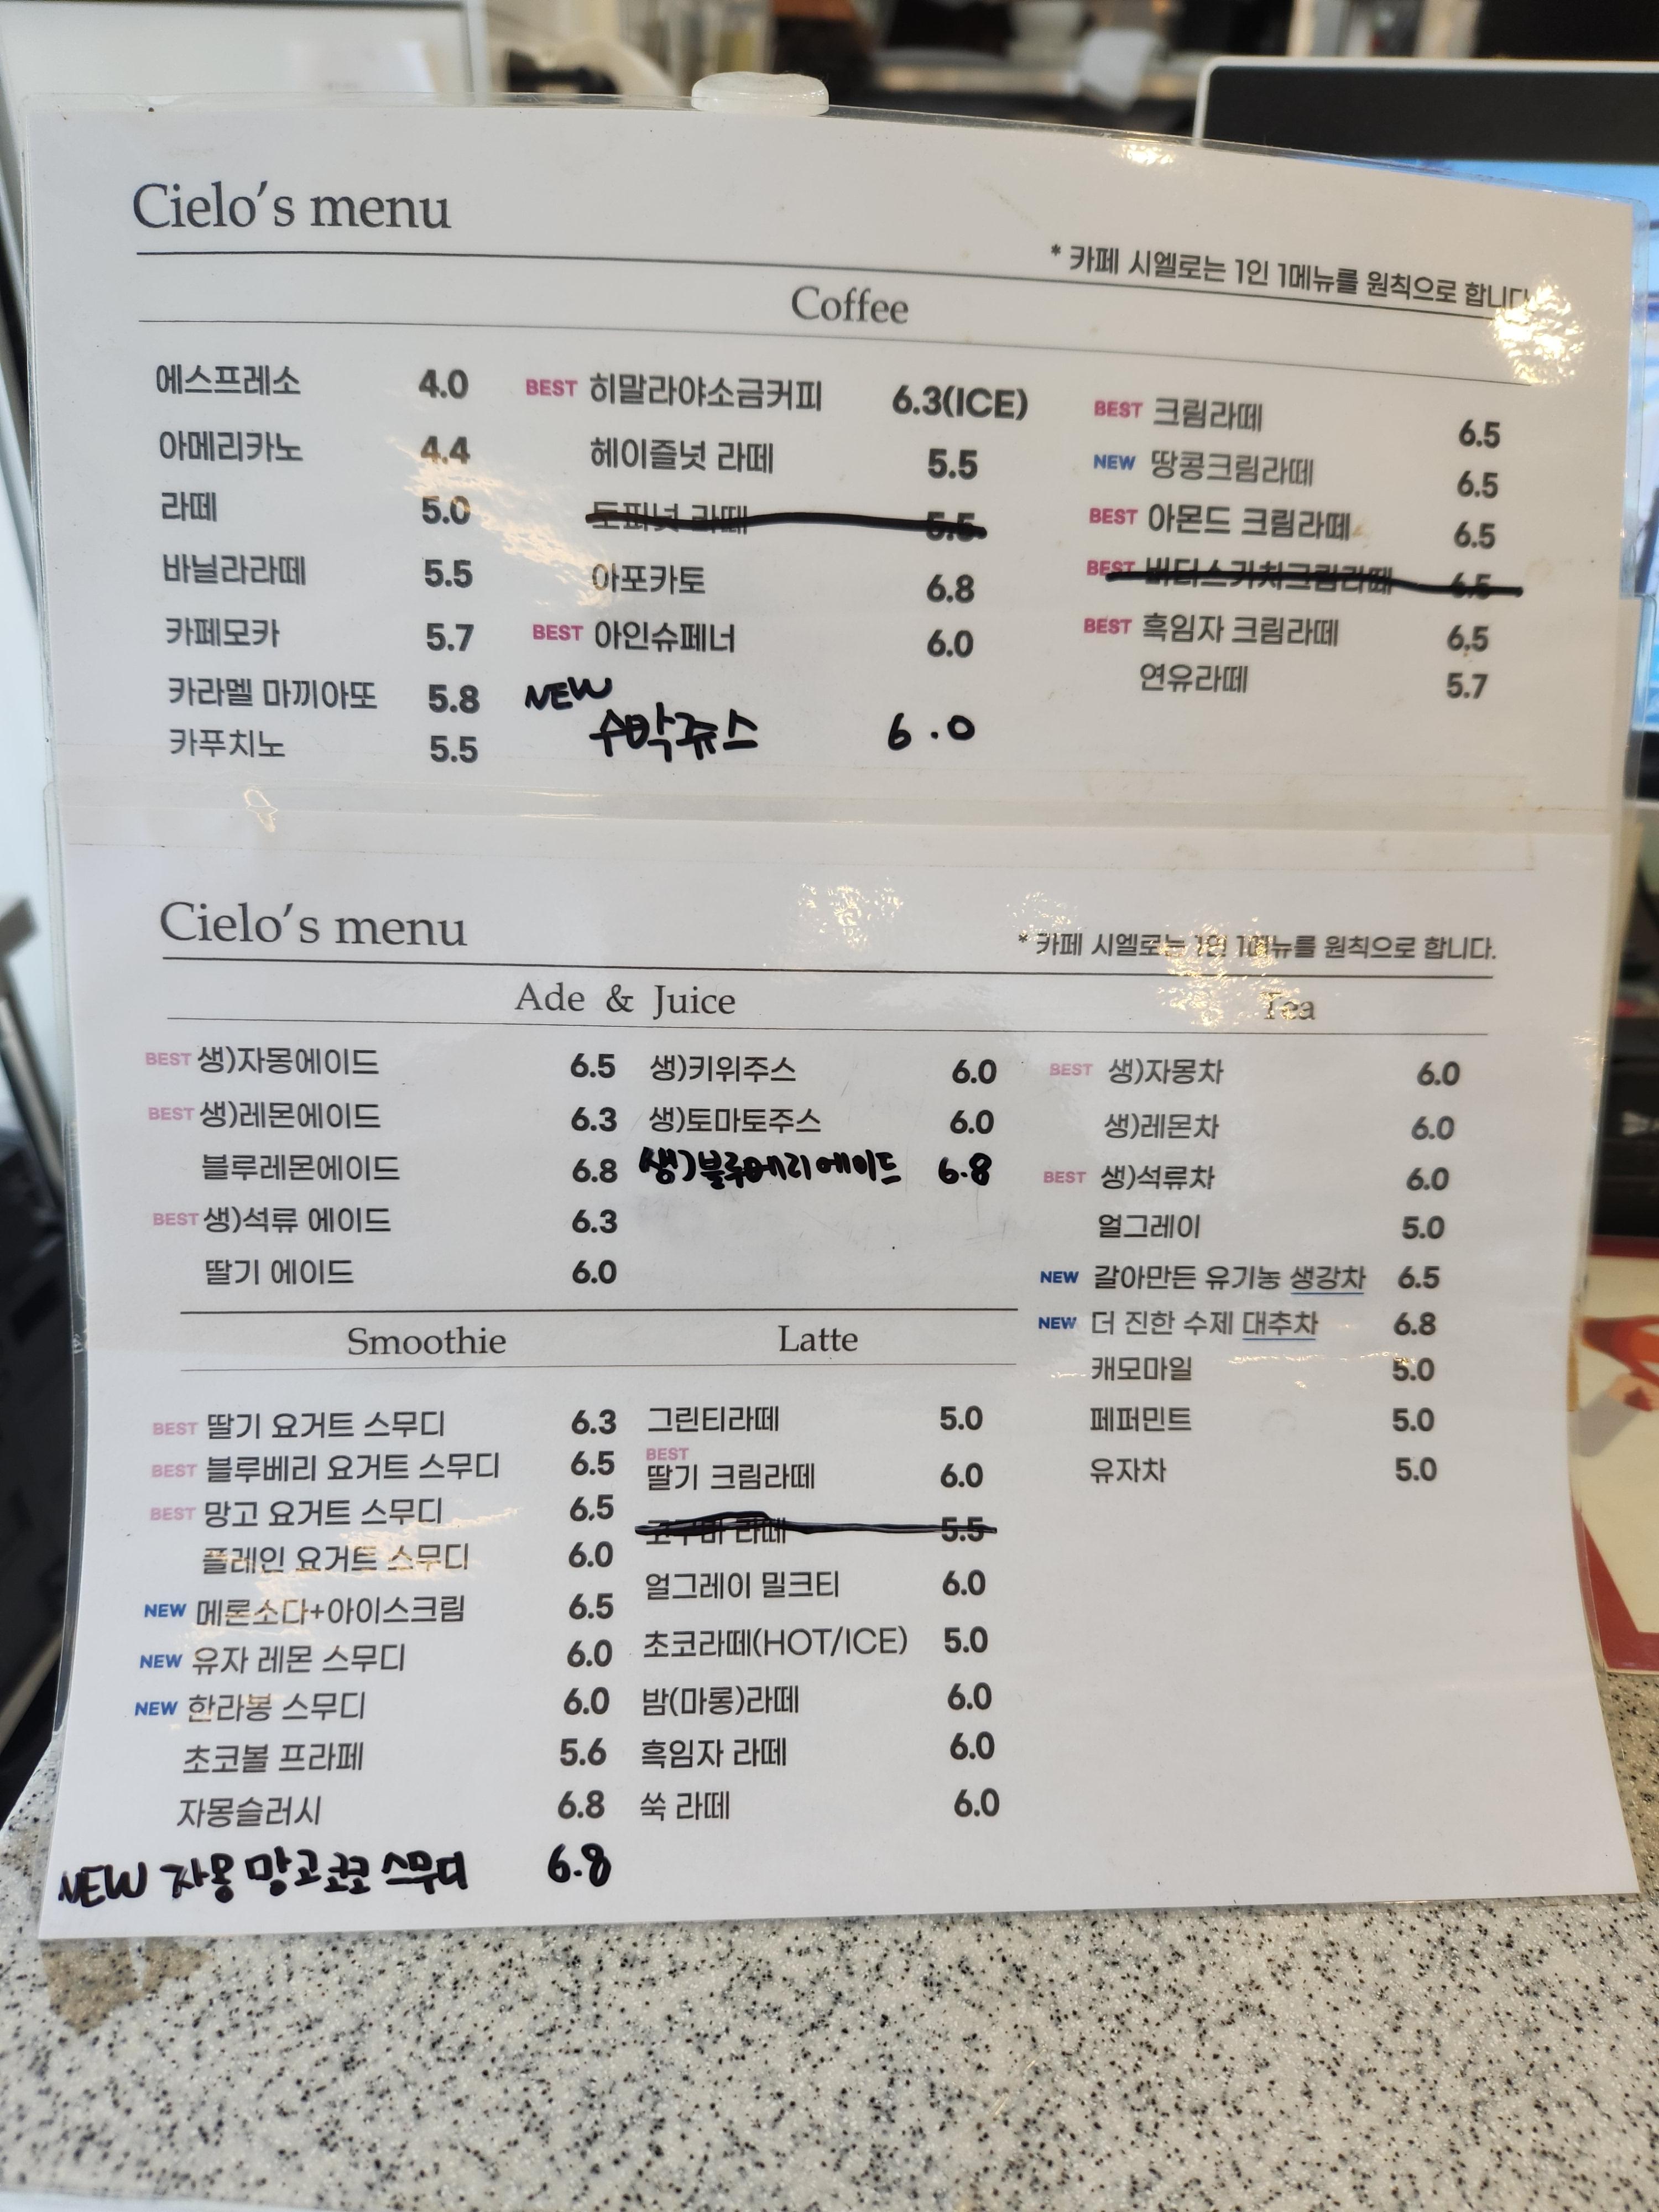 Cielo's menu
* 카페 시엘로는 1인 1메뉴를 원칙으로 합니다
Coffee
에스프레소 4.0
아메리카노 4.4
라떼 5.0
바닐라라떼 5.5
카페모카 5.7
카라멜 마끼아또 5.8
카푸치노 5.5
BEST 히말라야소금커피 6.3(ICE)
헤이즐넛 라떼 5.5
토피넛 라떼 5.5
아포카토 6.8
BEST 아인슈페너 6.0
NEW
수박쥬스 6.0
BEST 크림라떼 6.5
NEW 땅콩크림라떼 6.5
BEST 아몬드 크림라떼 6.5
BEST 버터스카치크림라떼 6.5
BEST 흑임자 크림라떼 6.5
연유라떼 5.7
Cielo's menu
* 카페 시엘로는 1인 1메뉴를 원칙으로 합니다.
Ade & Juice
BEST 생)자몽에이드 6.5
BEST 생)레몬에이드 6.3
블루레몬에이드 6.8
BEST 생)석류 에이드 6.3
딸기 에이드 6.0
생)키위주스 6.0
생)토마토주스 6.0
생)블루베리에이드 6.8
Tea
BEST 생)자몽차 6.0
생)레몬차 6.0
BEST 생)석류차 6.0
얼그레이 5.0
NEW 갈아만든 유기농 생강차 6.5
NEW 더 진한 수제 대추차 6.8
캐모마일 5.0
페퍼민트 5.0
유자차 5.0
Smoothie
BEST 딸기 요거트 스무디 6.3
BEST 블루베리 요거트 스무디 6.5
BEST 망고 요거트 스무디 6.5
플레인 요거트 스무디 6.0
NEW 메론소다+아이스크림 6.5
NEW 유자 레몬 스무디 6.0
NEW 한라봉 스무디 6.0
초코볼 프라페 5.6
자몽슬러시 6.8
NEW 자몽망고코코스무디 6.8
Latte
그린티라떼 5.0
BEST
딸기 크림라떼 6.0
고구마 라떼 5.5
얼그레이 밀크티 6.0
초코라떼(HOT/ICE) 5.0
밤(마롱)라떼 6.0
흑임자 라떼 6.0
쑥 라떼 6.0